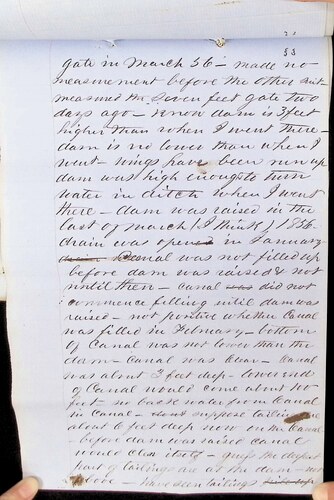 53
gate in March 56 - made no
measurement before the other suit
measured the seven feet gate two
days ago - Know dam is 3 feet
higher than when I went there -
dam is no lower than when I
went - wings have been run up
dam was high enough to turn
water in ditch when I went
there - dam was raised in the
last of March (I think) 1856 -
drain was opened in January
Canal was not filled up
before dam was raised & not
until then - canal did not
commence filling until dam was
raised - not positive whether Canal
was filled in February - bottom
of Canal was not lower than the
dam - Canal was clear - Canal
was about 3 feet deep - lower end
of Canal would come about
feet - no back water from Canal
in Canal - suppose tailings are
about 6 feet deep now in the Canal
- before dam was raised canal
would clear itself - guess the deepest
part of tailings are at the dam - not
above - have seen tailings